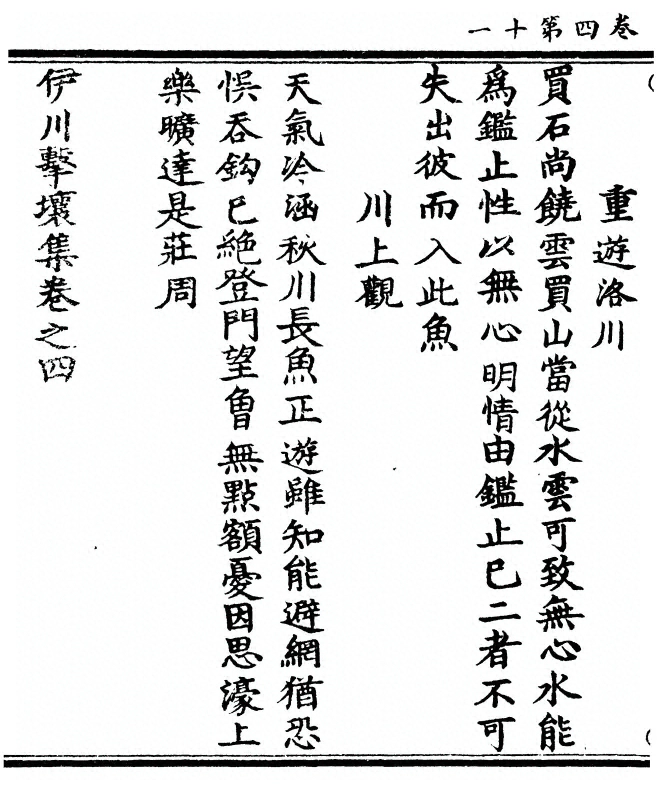 巻四第十一
重遊洛川
買石尚饒雲買山當從水雲可致無心水能
爲鑑止性以無心明情由鑑止已二者不可
失出彼而入此魚
川上觀
天氣冷涵秋川長魚正遊雖知能避網猶恐
悞吞鈎已絶登門望曾無點額憂因思濠上
樂曠達是莊周
伊川擊壤集卷之四